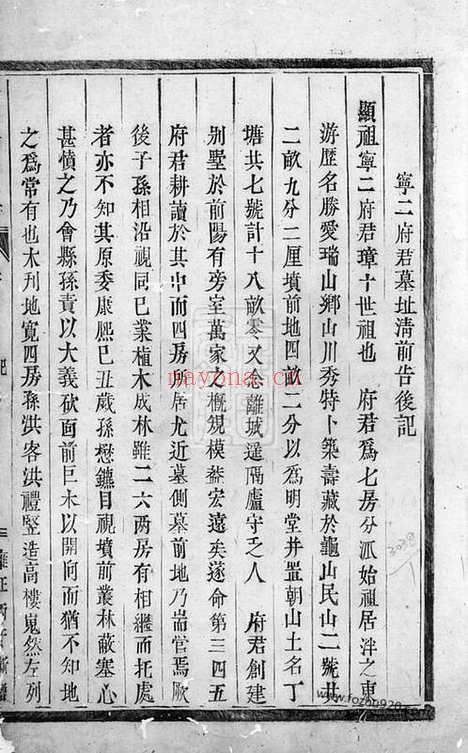 寧二府君墓址清前告後記
顯祖寧二府君璋十世祖也　府君爲七房分派始祖居泮之東
游歷名勝愛瑞山鄉山川秀特卜築壽藏於龜山民山二號共
二畝九分二厘墳前地四畝二分以爲明堂并置朝山土名丁
塘共七號計十八畝零又念離城遥隔廬守乏人　府君創建
别墅於前陽有旁室萬家之槪規模益宏遠矣遂命第三四五
府君耕讀於其中而四房所居尤近墓側墓前地乃耑管焉厥
後子孫相沿視同己業植木成林雖二六兩房有相繼而抚處
者亦不知其原委康熙己丑歲孫懋鑣目視墳前叢林蔽塞心
甚憤之乃會縣孫責以大義砍面前巨木以開向而猶不知地
之爲常有也木刋地寬四房孫洪客洪禮竪造高樓嵬然左列
nayona.cn
3028
www.fozou920.com